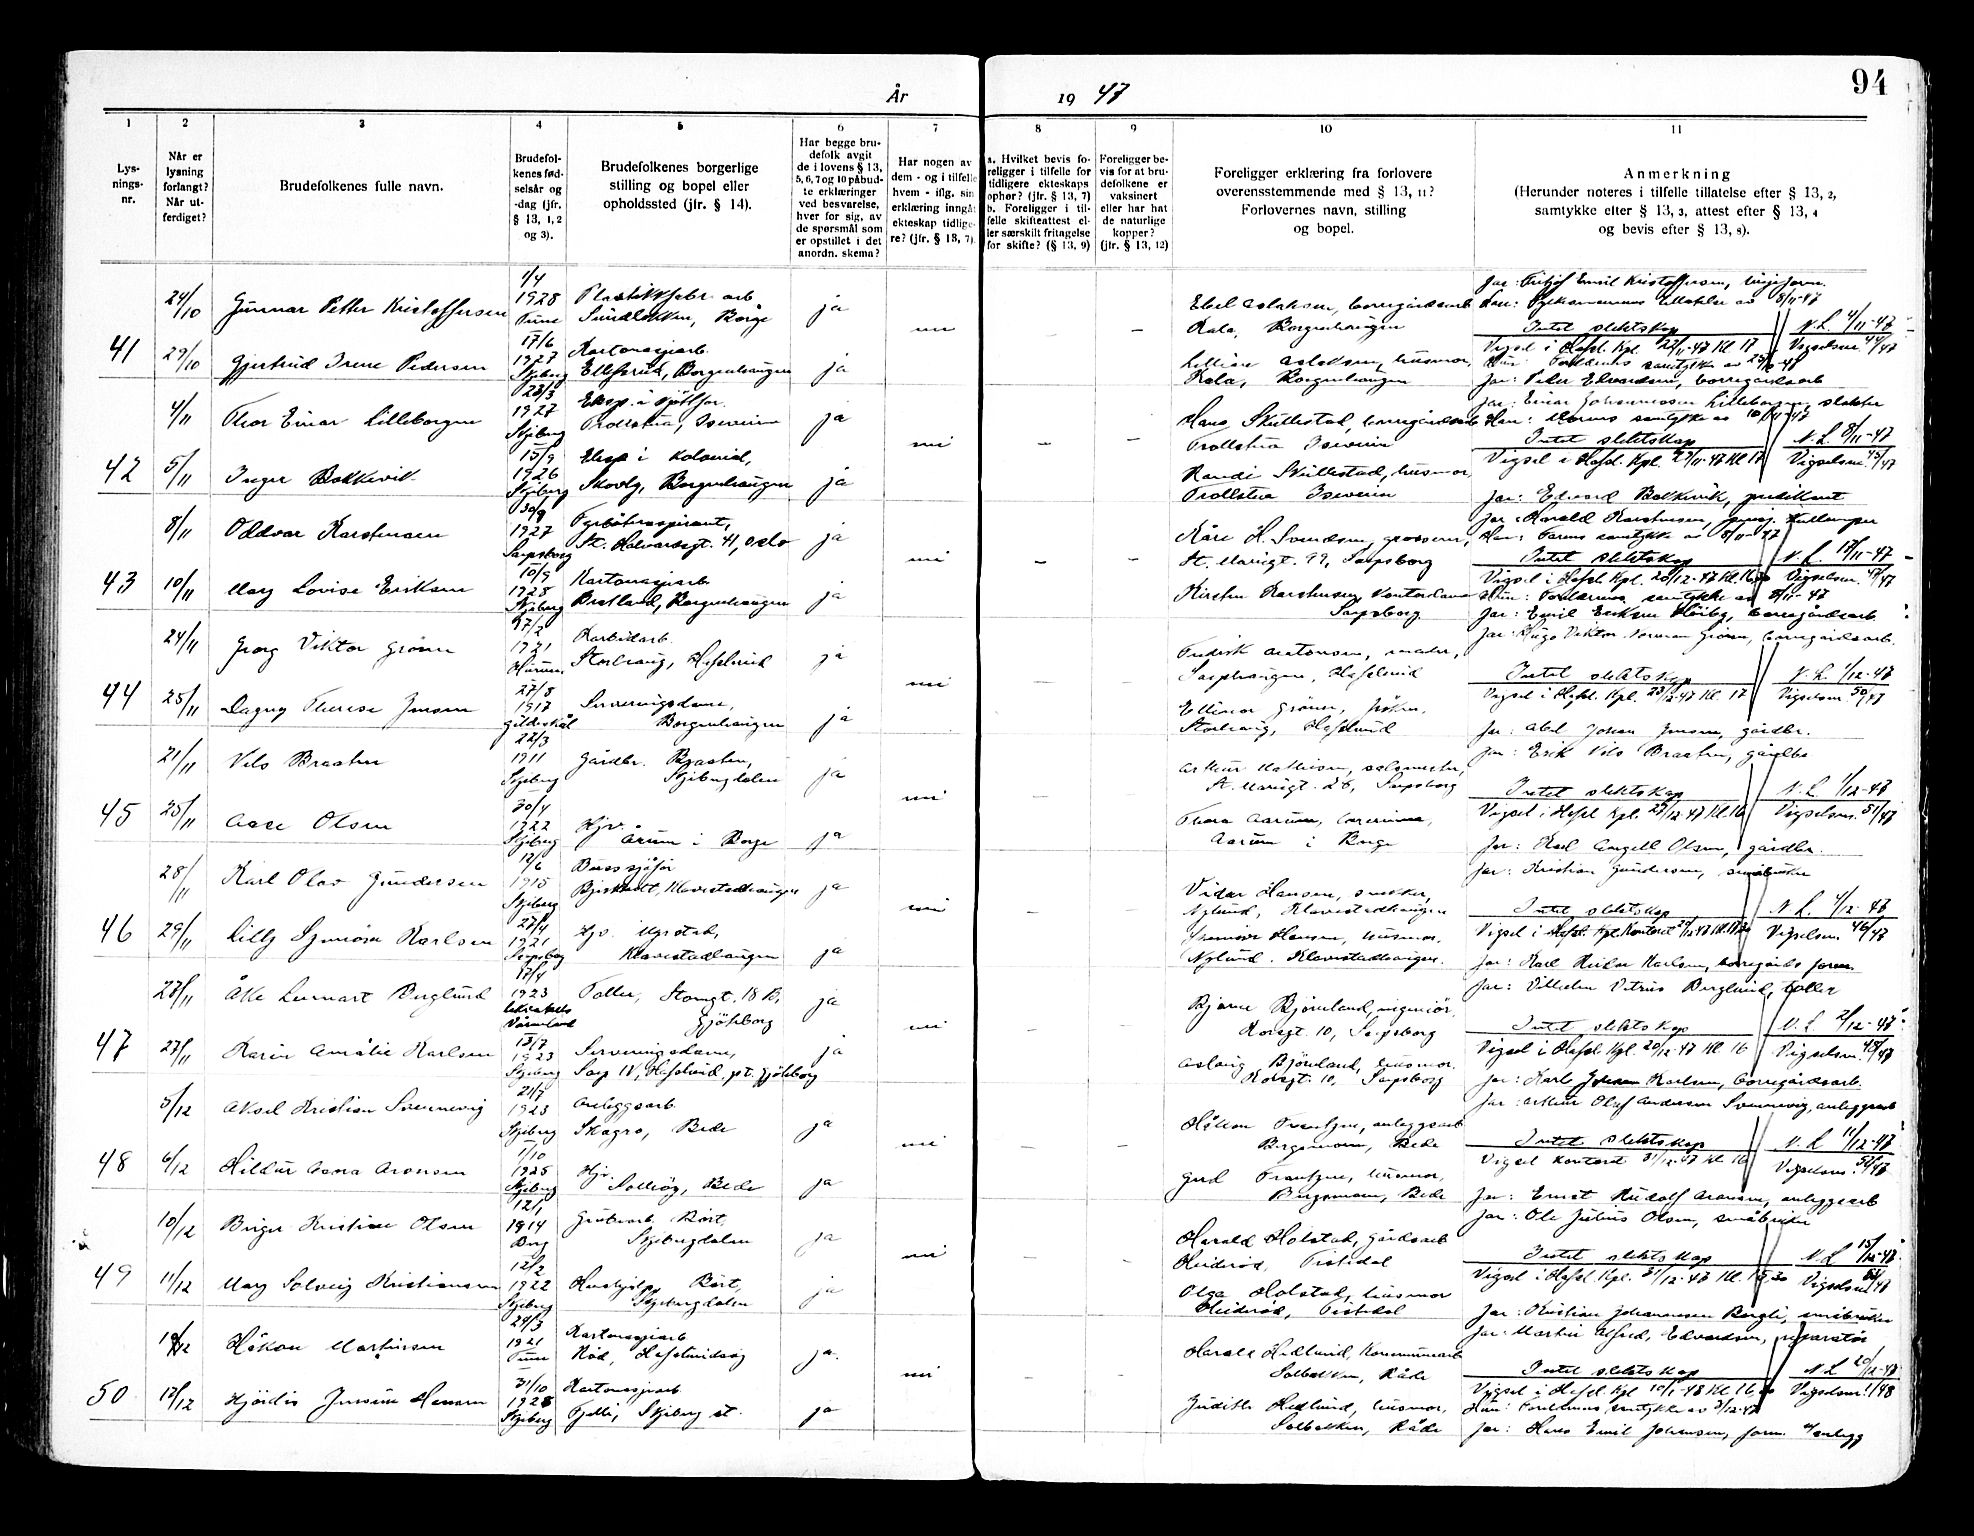 94
År 1947
1 2 3 4 5 6 7 8 9 10 11
Lysnings-nr.
Når er lysning forlangt? Når utferdiget?
Brudefolkenes fulle navn.
Brudefolkenes fødselsår og -dag (jfr. § 13, 1, 2 og 3).
Brudefolkenes borgerlige stilling og bopel eller opholdssted (jfr. § 14).
Har begge brudefolk avgit de i lovens § 13, 5, 6, 7 og 10 påbudte erklæringer ved besvarelse, hver for sig, av de spørsmål som er opstillet i det anordn. skema?
Har nogen av dem - og i tilfelle hvem - iflg. sin erklæring inngått ekteskap tidligere? (jfr. § 13, 7).
a. Hvilket bevis foreligger i tilfelle for tidligere ekteskaps ophør? (jfr. § 13, 7) b. Foreligger i tilfelle skifteattest eller særskilt fritagelse for skifte? (§ 13, 9)
Foreligger bevis for at brudefolkene er vaksinert eller har hat de naturlige kopper? (jfr. § 13, 12)
Foreligger erklæring fra forlovere overensstemmende med § 13, 11? Forlovernes navn, stilling og bopel.
Anmerkning (Herunder noteres i tilfelle tillatelse efter § 13, 2, samtykke efter § 13, 3, attest efter § 13, 4 og bevis efter § 13, 8).
41
24/10 Gunnar Petter Kristoffersen 1/4 1928 Tune Plastikkfabr. arb. Sundløkken, Borge ja
29/10 Gjertrud Irene Pedersen 17/6 1927 Skjeberg Kartonasjearb. Borgenhaugen ja
nei
Kala, Borgenhaugen
Kala, Borgenhaugen
Intet slektskap N.L. 4/11-47
Vigsel i Hafsl. Kpl. 22/11-47 Kl 17 Vigselsnr. 44/47
42
4/11 Thor Einar Lilleborgen 28/3 1927 Skjeberg Trollstua, Isevein ja
5/11 Inger Bakkevik 15/9 1926 Skjeberg Eksp i kolonial, Skovly, Borgenhaugen ja
nei
Hans Skullestad, borregårdsarb
Trollstua Isevein
Randi Skullestad, husmor,
Trollstua Isevein
Far: Einar Johannessen Lilleborgen, slakter
Han: Morens samtykke av 10/11-47
Intet slektskap N.L. 8/11-47
Vigsel i Hafsl. Kpl. 29/11-47 Kl 17 Vigselsnr. 45/47
Far: Edvard Bakkevik, predikant
43
8/11 Oddvar Karstensen 30/9 1927 Sarpsborg Fyrbøteraspirant, St. Halvardsgt. 41, Oslo ja
10/11 Mary Lovise Eriksen 10/9 1928 Skjeberg Kartonasjearb Bratland, Borgenhaugen ja
nei
Kåre H. Svendsen, grosserer,
St. Mariegt. 99, Sarpsborg
Kirsten Karstensen, Kontordame
Sarpsborg
Han: Farens samtykke av 8/11-47
Intet slektskap N.L. 17/11-47
Vigsel i Hafsl. Kpl. 20/12-47 Kl. 16,30 Vigselsnr. 47/47
Hun: Foreldrenes samtykke av 8/11-47
44
24/11 Georg Viktor Grönn 27/2 1921 Hurum Karbidarb. Storhaug, Hafslund ja
25/11 Dagny Therese Jensen 27/8 1917 Gildeskål Serveringsdame, Borgenhaugen ja
nei
Sarphaugen, Hafslund
Ellinor Grönn, frøken,
Storhaug, Hafslund
Far: Hugo Viktor Herman Grönn, borregårdsarb.
Intet slektskap N.L. 1/12-47
Vigsel i Hafsl. Kpl. 28/12-47 Kl. 17 Vigselsnr. 50/47
Far: Abel Johan Jensen, gårdbr.
45
21/11 Nils Braaten 22/3 1911 Skjeberg Gårdbr. Braaten, Skjebergdalen ja
25/11 Aase Olsen 30/4 1922 Skjeberg Hjv. Årum i Borge ja
nei
St. Mariegt. 26, Sarpsborg
Thora Aarum,
Aarum i Borge
Far: Erik Nils Braaten, gårdbr
Intet slektskap N.L. 1/12-47
Vigsel i Hafsl. Kpl. 29/12-47 Kl. 16 Vigselsnr. 51/47
Far: Karl Angell Olsen, gårdbr.
46
28/11 Karl Olav Gundersen 12/6 1915 Skjeberg Klavestadhaugen ja
29/11 Lilly Synnöve Karlsen 27/4 1921 Sarpsborg Hjv. Klavestadhaugen ja
nei
Vidar Hansen, snekker,
Nylund, Klavestadhaugen
Synnöve Hansen, husmor.
Nylund. Klavestadhaugen.
Far: Kristian Gundersen, småbruker
Intet slektskap N.L. 4/12-47
Vigselsnr. 46/47
47
27/11 Åke Lennart Berglund 17/4 1923 Värmland Toller, 18 B, Gjöteborg ja
27/11 Karin Amalie Karlsen 13/7 1923 Skjeberg Serveringsdame, Sarp IV, Hafslund. pt. Gjöteborg ja
nei
Bjarne Björnland, ingeniör,
Korsgt. 10, Sarpsborg
Aslaug Björnland, husmor,
Korsgt. 10, Sarpsborg
Far: Vilhelm Vitrus Berglund, toller
Intet slektskap N.L. 2/12-47
Vigsel i Hafsl. Kpl. 20/12-47 Kl. 16 Vigselsnr. 48/47
Far: Karl Johan Karlsen, borregårdsarb.
48
5/12 Aksel Kristian Svennevig 21/7 1923 Skjeberg Anleggsarb. Skagro, Bede ja
6/12 Hildur Anna Aronsen 1/10 1925 Skjeberg Hjv. Solhøg, Bede ja
nei
Håkon Frantzen, anleggsarb
Bergemoen, Bede
Gerd Frantzen, husmor,
Bergemoen, Bede
Far: Arthur Oluf Andersen Svennevig, anleggsarb
Intet slektskap N.L. 11/12-47
Vigsel kontoret 31/12-47 kl 16 Vigselsnr. 52/47
Far: Ernst Rudolf Aronsen, anleggsarb
49
10/12 Birger Kristian Olsen 12/1 1914 Berg Grubearb. Bört, Skjebergdalen ja
11/12 Mary Solveig Kristiansen 12/2 1922 Skjeberg Hushjelp, Bört, Skjebergdalen ja
nei
Harald Holstad, Gårdsarb
Heieröd, Tistedal
Olga Holstad, husmor
Heieröd, Tistedal
Far: Ole Julius Olsen, småbruker
Intet slektskap N.L 15/12-47
Vigsel i Hafsl. Kpl. 31/12-47 Kl. 15,30 Vigselsnr.
Far: Kristian Johannessen Bergli, småbruker
50
Håkon Martinsen 29/3 1921 Tune Kartonasjearb Röd, Hafslundsøy ja.
12/12 Hjördis Jensine Hansen 31/10 1928 Skjeberg Kartonasjearb. Fjelli, Skjeberg st. ja
nei
Harald Hedlund, Kommunearb
Solbakken, Råde
Judith Hedlund, husmor,
Solbakken, Råde
Far: Martin Alfred, Edvardsen, reparatør
Intet slektskap N.L 20/12-47
Vigsel i Hafsl. Kpl 10/1-48 Kl. 16,30 Vigselsnr. 1/48
Hun: Foreldrenes samtykke av 3/12-47
Far: Hans Emil Johansen, form. v/anlegg